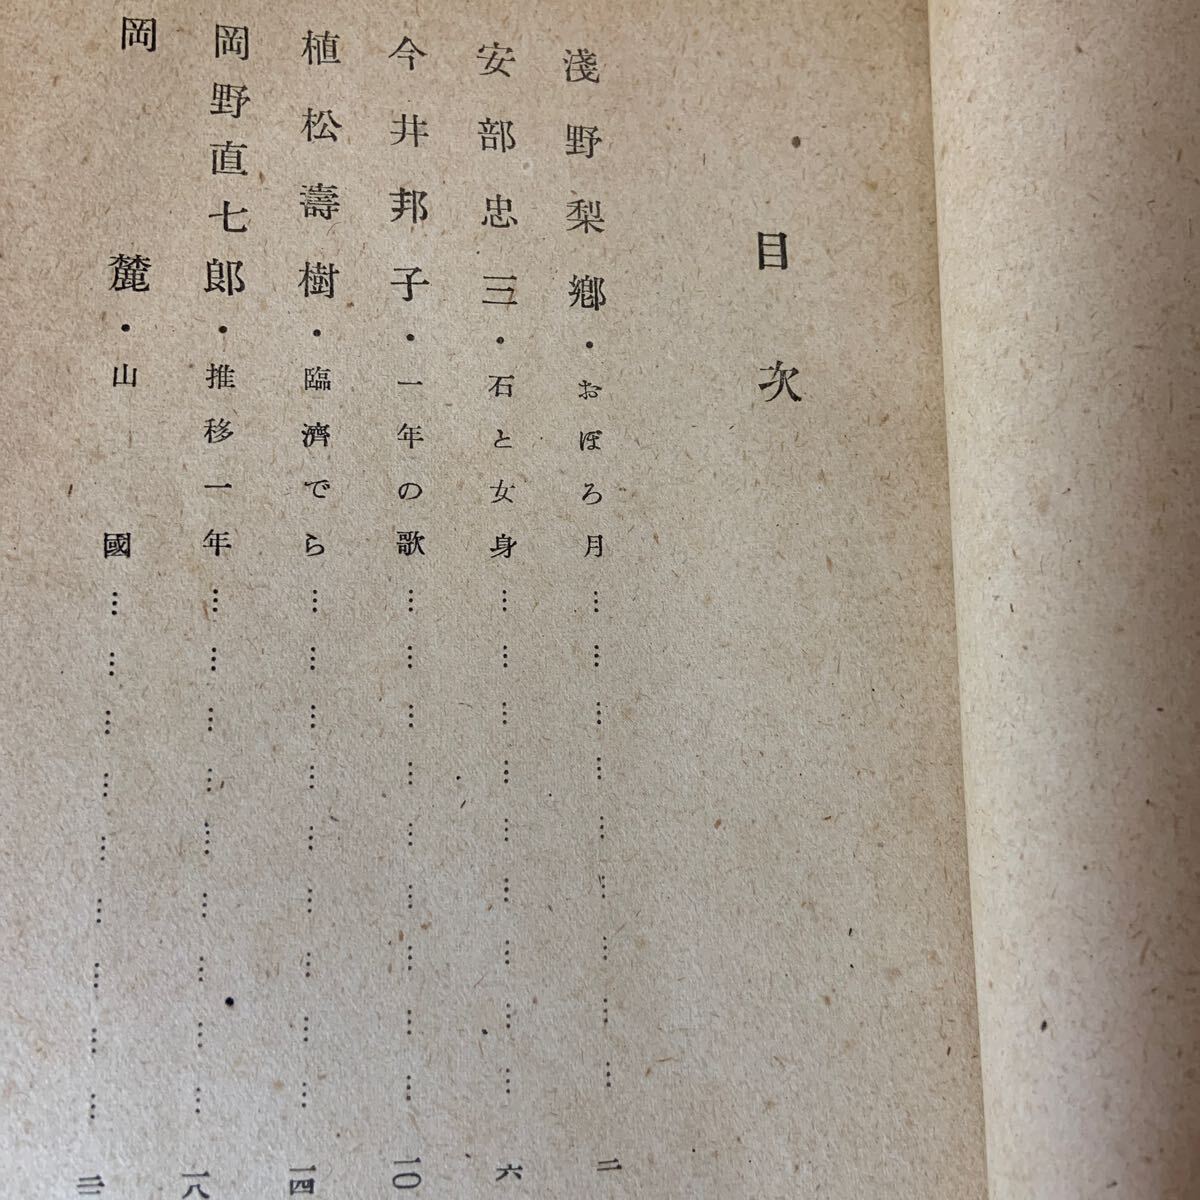 目次
淺野梨鄕・おぼろ月………………………二
安部忠三・石と女身………………………六
今井邦子・一年の歌………………………一〇
植松壽樹・臨濟でら………………………一四
岡野直七郎・推移一年………………………一八
岡麓・山國………………………二二